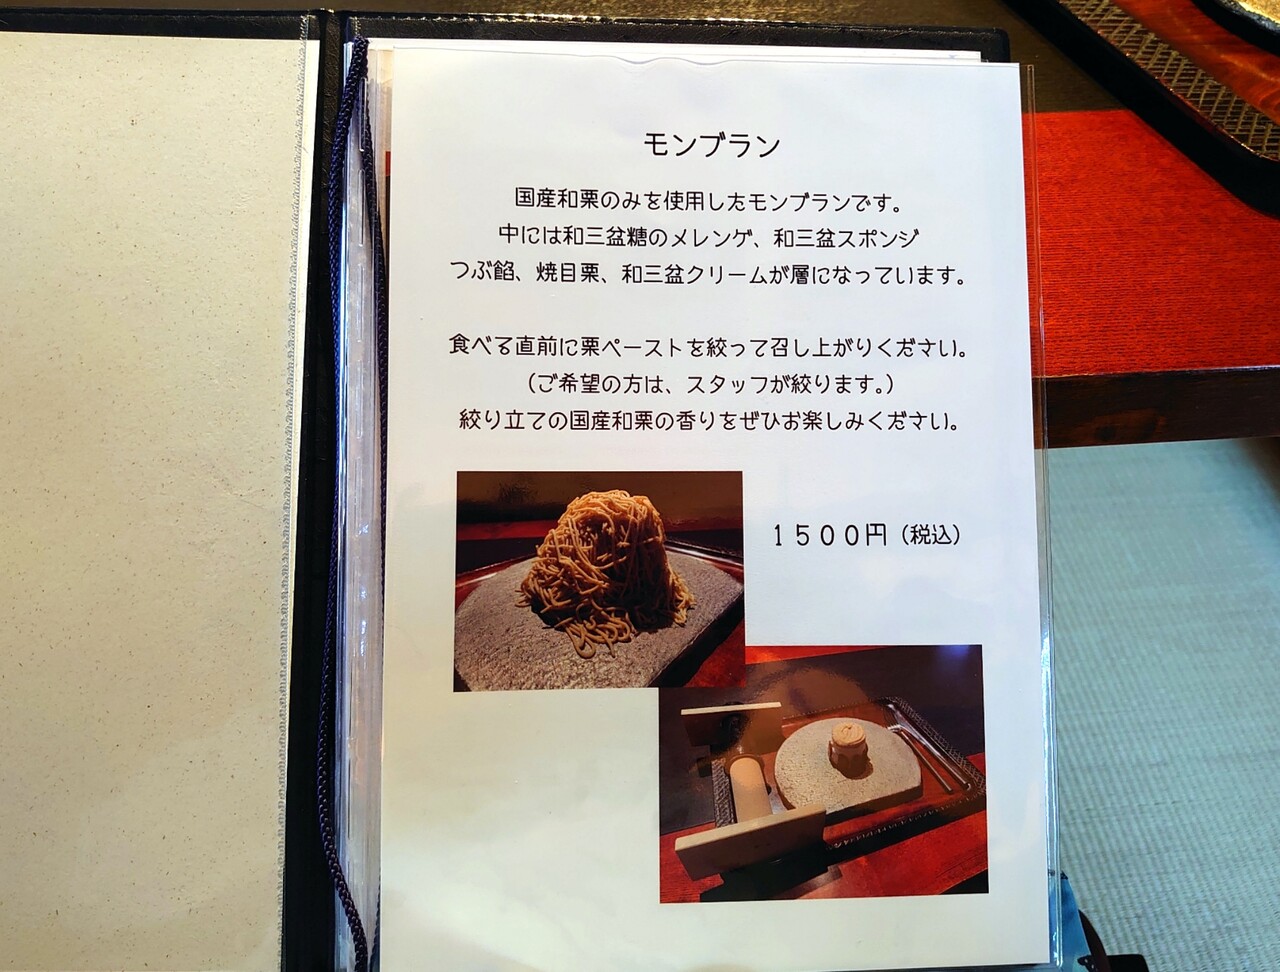 モンブラン
国産和栗のみを使用したモンブランです。
中には和三盆糖のメレンゲ、和三盆スポンジ
つぶ餡、焼目栗、和三盆クリームが層になっています。
食べる直前に栗ペーストを絞って召し上がりください。
（ご希望の方は、スタッフが絞ります。）
絞り立ての国産和栗の香りをぜひお楽しみください。
１５００円（税込）